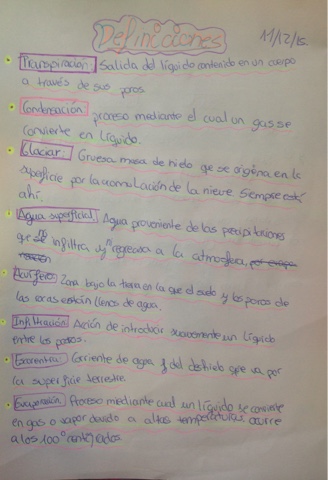 Definiciones 11/12/15
Transpiración: Salida del líquido contenido en un cuerpo
a través de sus poros.
Condensación: proceso mediante el cual un gas se
convierte en líquido.
Glaciar: Gruesa masa de hielo que se origina en la
superficie por la acomulación de la nieve siempre está
ahí.
Agua superficial: Agua proveniente de las precipitaciones
que no se infiltra y regresa a la atmosfera,
Acuífero: Zona bajo la tierra en la que el suelo y los poros de
las rocas están llenos de agua.
Infiltración: Acción de introducir suavemente un líquido
entre los poros.
Escorrentía: Corriente de agua del deshielo que va por
la superficie terrestre.
Evaporación: Proceso mediante cual un líquido se convierte
en gas o vapor devido a altas temperaturas ocurre
a los 100° centígrados